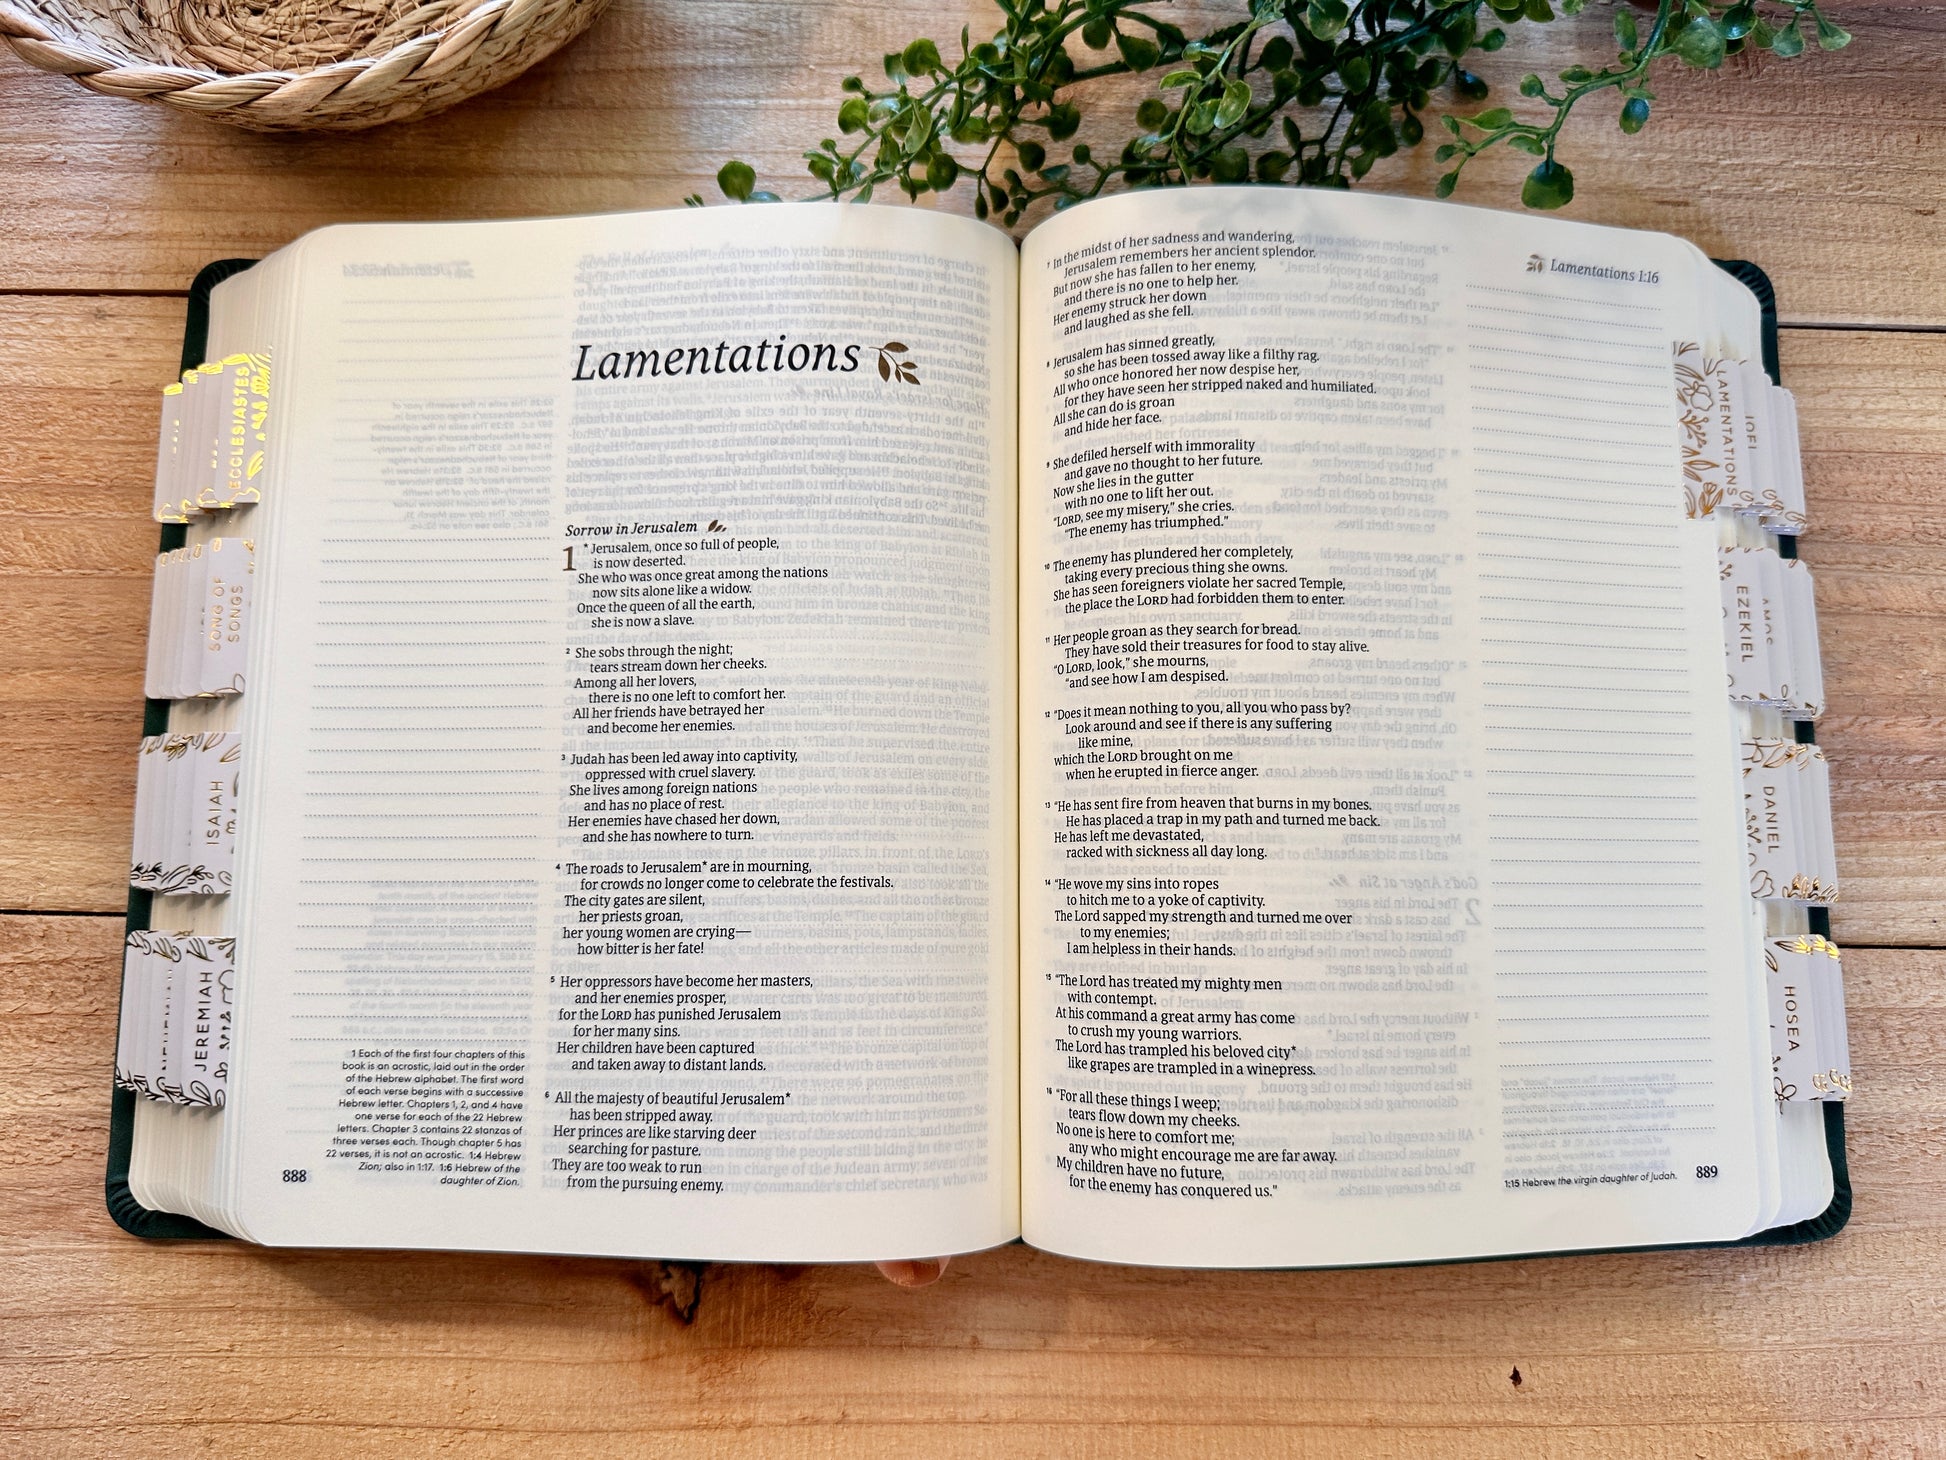 Lamentations
Sorrow in Jerusalem
1 * Jerusalem, once so full of people,
is now deserted.
She who was once great among the nations
now sits alone like a widow.
Once the queen of all the earth,
she is now a slave.
2 She sobs through the night;
tears stream down her cheeks.
Among all her lovers,
there is no one left to comfort her.
All her friends have betrayed her
and become her enemies.
3 Judah has been led away into captivity,
oppressed with cruel slavery.
She lives among foreign nations
and has no place of rest.
Her enemies have chased her down,
and she has nowhere to turn.
4 The roads to Jerusalem* are in mourning,
for crowds no longer come to celebrate the festivals.
The city gates are silent,
her priests groan,
her young women are crying—
how bitter is her fate!
5 Her oppressors have become her masters,
and her enemies prosper,
for the LORD has punished Jerusalem
for her many sins.
Her children have been captured
and taken away to distant lands.
6 All the majesty of beautiful Jerusalem*
has been stripped away.
Her princes are like starving deer
searching for pasture.
They are too weak to run
from the pursuing enemy.
1 Each of the first four chapters of this
book is an acrostic, laid out in the order
of the Hebrew alphabet. The first word
of each verse begins with a successive
Hebrew letter. Chapters 1, 2, and 4 have
one verse for each of the 22 Hebrew
letters. Chapter 3 contains 22 stanzas of
three verses each. Though chapter 5 has
22 verses, it is not an acrostic. 1:4 Hebrew
Zion; also in 1:17. 1:6 Hebrew of the
daughter of Zion.
888
Lamentations 1:16
7 In the midst of her sadness and wandering,
Jerusalem remembers her ancient splendor.
But now she has fallen to her enemy,
and there is no one to help her.
Her enemy struck her down
and laughed as she fell.
8 Jerusalem has sinned greatly,
so she has been tossed away like a filthy rag.
All who once honored her now despise her,
for they have seen her stripped naked and humiliated.
All she can do is groan
and hide her face.
9 She defiled herself with immorality
and gave no thought to her future.
Now she lies in the gutter
with no one to lift her out.
“LORD, see my misery,” she cries.
“The enemy has triumphed.”
10 The enemy has plundered her completely,
taking every precious thing she owns.
She has seen foreigners violate her sacred Temple,
the place the LORD had forbidden them to enter.
11 Her people groan as they search for bread.
They have sold their treasures for food to stay alive.
“O LORD, look,” she mourns,
“and see how I am despised.
12 “Does it mean nothing to you, all you who pass by?
Look around and see if there is any suffering
like mine,
which the LORD brought on me
when he erupted in fierce anger.
13 “He has sent fire from heaven that burns in my bones.
He has placed a trap in my path and turned me back.
He has left me devastated,
racked with sickness all day long.
14 “He wove my sins into ropes
to hitch me to a yoke of captivity.
The Lord sapped my strength and turned me over
to my enemies;
I am helpless in their hands.
15 “The Lord has treated my mighty men
with contempt.
At his command a great army has come
to crush my young warriors.
The Lord has trampled his beloved city*
like grapes are trampled in a winepress.
16 “For all these things I weep;
tears flow down my cheeks.
No one is here to comfort me;
any who might encourage me are far away.
My children have no future,
for the enemy has conquered us.”
1:15 Hebrew the virgin daughter of Judah.
889
ECCLESIASTES
SONG OF
SONGS
ISAIAH
JEREMIAH
LAMENTATIONS
JOEL
EZEKIEL
AMOS
DANIEL
HOSEA